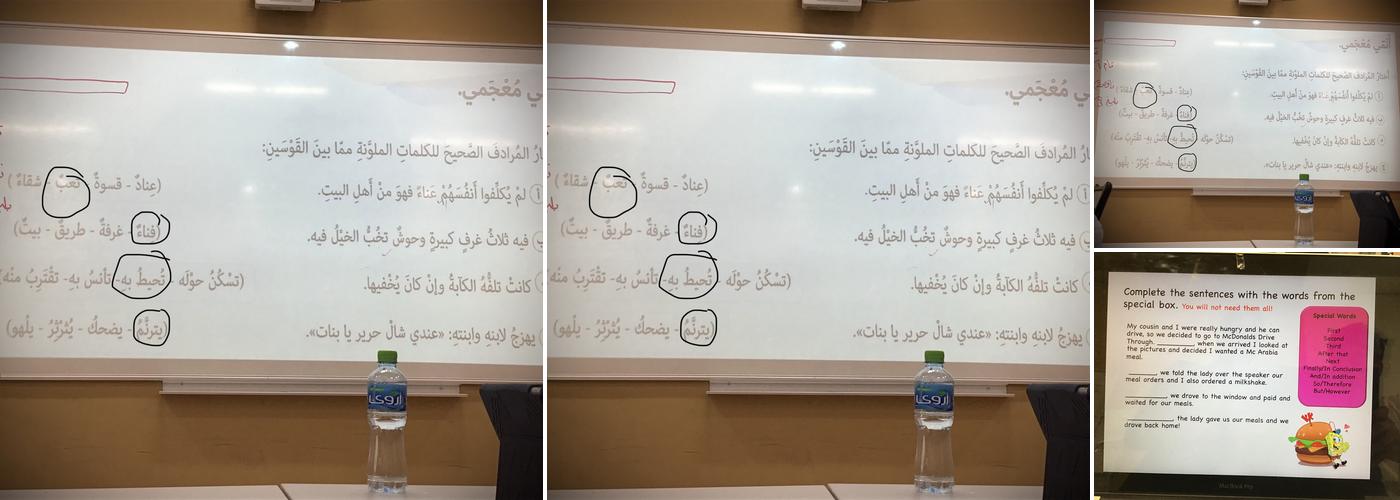 ي مُعْجَمي.
ارُ المُرادفَ الصَّحيحَ للكَلماتِ الملوَّنةِ ممّا بينَ القَوْسَينِ:
أ لمْ يُكَلِّفوا أَنفُسَهُمْ عَناءً فهوَ منْ أَهلِ البيتِ. (عِنادٌ - قسوةٌ - تعَبٌ - شقاءٌ)
ب فيه ثلاثُ غرفٍ كبيرةٍ وحوشٌ تخُبُّ الخيْلُ فيه. (فناءٌ - غرفةٌ - طريقٌ - بيتٌ)
كانتْ تلفُّهُ الكآبةُ وإنْ كانَ يُخْفيها. (تسْكُنُ حوْلَه - تُحيطُ بهِ - تأنَسُ بهِ - تقْتَرِبُ منْه
يهزجُ لابنِهِ وابنتِهِ: «عندي شالْ حرير يا بنات». (يترنَّمُ - يضحكُ - يُثرْثِرُ - يلْهو)
أروى
ي مُعْجَمي.
ارُ المُرادفَ الصَّحيحَ للكَلماتِ الملوَّنةِ ممّا بينَ القَوْسَينِ:
أ لمْ يُكَلِّفوا أَنفُسَهُمْ عَناءً فهوَ منْ أَهلِ البيتِ. (عِنادٌ - قسوةٌ - تعَبٌ - شقاءٌ)
ب فيه ثلاثُ غرفٍ كبيرةٍ وحوشٌ تخُبُّ الخيْلُ فيه. (فناءٌ - غرفةٌ - طريقٌ - بيتٌ)
كانتْ تلفُّهُ الكآبةُ وإنْ كانَ يُخْفيها. (تسْكُنُ حوْلَه - تُحيطُ بهِ - تأنَسُ بهِ - تقْتَرِبُ منْه
يهزجُ لابنِهِ وابنتِهِ: «عندي شالْ حرير يا بنات». (يترنَّمُ - يضحكُ - يُثرْثِرُ - يلْهو)
أروى
أُنَمّي مُعْجَمي.
أَختارُ المُرادفَ الصَّحيحَ للكَلماتِ الملوَّنةِ ممّا بينَ القَوْسَينِ:
أ لمْ يُكَلِّفوا أَنفُسَهُمْ عَناءً فهوَ منْ أَهلِ البيتِ. (عِنادٌ - قسوةٌ - تعَبٌ - شقاءٌ)
ب فيه ثلاثُ غرفٍ كبيرةٍ وحوشٌ تخُبُّ الخيْلُ فيه. (فناءٌ - غرفةٌ - طريقٌ - بيتٌ)
كانتْ تلفُّهُ الكآبةُ وإنْ كانَ يُخْفيها. (تسْكُنُ حوْلَه - تُحيطُ بهِ - تأنَسُ بهِ - تقْتَرِبُ منْه)
يهزجُ لابنِهِ وابنتِهِ: «عندي شالْ حرير يا بنات». (يترنَّمُ - يضحكُ - يُثرْثِرُ - يلْهو)
Complete the sentences with the words from the
special box. You will not need them all!
My cousin and I were really hungry and he can
drive, so we decided to go to McDonalds Drive
Through. ________, when we arrived I looked at
the pictures and decided I wanted a Mc Arabia
meal.
________, we told the lady over the speaker our
meal orders and I also ordered a milkshake.
________, we drove to the window and paid and
waited for our meals.
________, the lady gave us our meals and we
drove back home!
Special Words
First
Second
Third
After that
Next
Finally/In Conclusion
And/In addition
So/Therefore
But/However
MacBook Pro